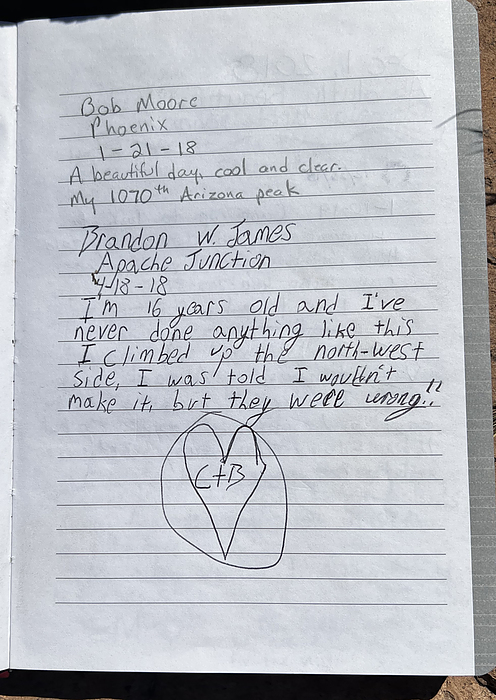 Bob Moore
Phoenix
1-21-18
A beautiful day, cool and clear.
My 1070th Arizona peak
Brandon W. James
Apache Junction
4-18-18
I'm 16 years old and I've
never done anything like this
I climbed up the north-west
side, I was told I wouldn't
make it, but they were wrong!!
C+B